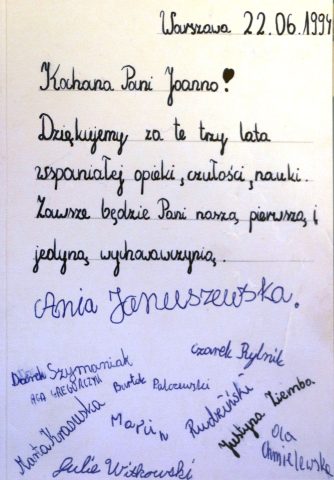 Warszawa 22.06.1994
Kochana Pani Joanno!
Dziękujemy za te trzy lata
wspaniałej opieki, czułości, nauki.
Zawsze będzie Pani naszą pierwszą i
jedyną wychowawczynią.
Ania Januszewska.
Czarek Rylnik
Darek Szymaniak
AGA GREGORCZYK
Bartek Palczewski
Marta Krasuska
Marcin Rudziński
Justyna Ziemba.
Ola Chmielewska
Julia Witkowski